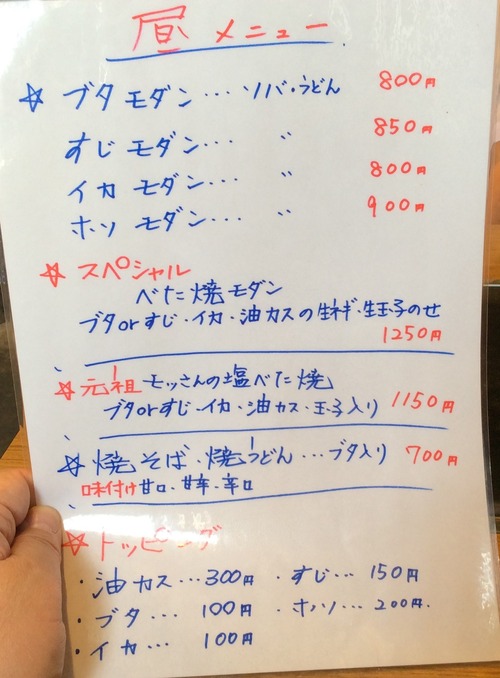 昼 メニュー
☆ ブタ モダン・・・ソバ・うどん 800円
すじ モダン・・・ 〃 850円
イカ モダン・・・ 〃 800円
ホソ モダン・・・ 〃 900円
☆ スペシャル
べた焼モダン
ブタorすじ・イカ・油カスの生ネギ・生玉子のせ
1250円
☆ 元祖 モッさんの塩べた焼
ブタorすじ・イカ・油カス・玉子入り 1150円
☆ 焼そば・焼うどん・・・ブタ入り 700円
味付け 甘口・甘辛・辛口
☆ トッピング
・油カス・・・300円 ・すじ・・・150円
・ブタ・・・100円 ・ホソ・・・200円.
・イカ・・・100円